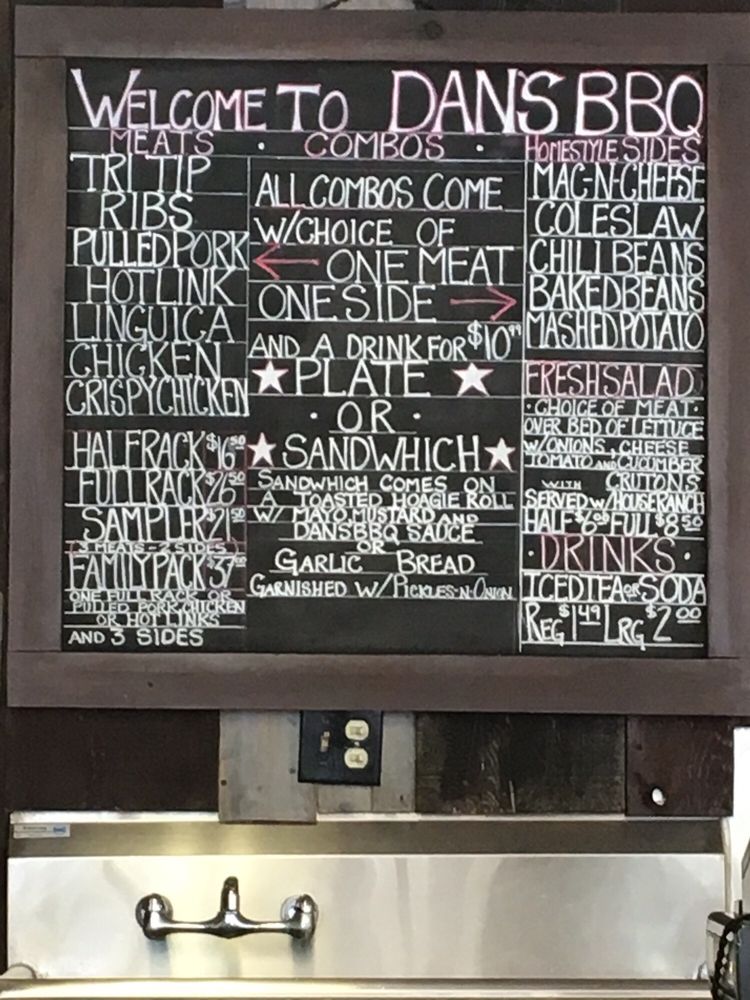 WELCOME TO DAN'S BBQ
MEATS · COMBOS · HOMESTYLE SIDES
TRI TIP
RIBS
PULLED PORK
HOT LINK
LINGUICA
CHICKEN
CRISPY CHICKEN
HALF RACK $16.50
FULL RACK $26.50
SAMPLER $21.50
(3 MEATS - 2 SIDES)
FAMILY PACK $37.00
ONE FULL RACK OR
PULLED PORK, CHICKEN
OR HOT LINKS
AND 3 SIDES
ALL COMBOS COME
W/CHOICE OF
← ONE MEAT
ONE SIDE →
AND A DRINK FOR $10.99
★ PLATE ★
· OR ·
★ SANDWHICH ★
SANDWHICH COMES ON
A TOASTED HOAGIE ROLL
W/ MAYO, MUSTARD AND
DANSBBQ SAUCE
OR
GARLIC BREAD
GARNISHED W/PICKLES-N-ONION
MAC-N-CHEESE
COLESLAW
CHILI BEANS
BAKED BEANS
MASHED POTATO
FRESH SALAD
· CHOICE OF MEAT ·
OVER BED OF LETTUCE
W/ONIONS, CHEESE
TOMATO AND CUCUMBER
WITH CRUTONS
SERVED W/HOUSE RANCH
HALF $6.00 FULL $8.50
· DRINKS ·
ICED TEA OR SODA
REG $1.49 LRG $2.00